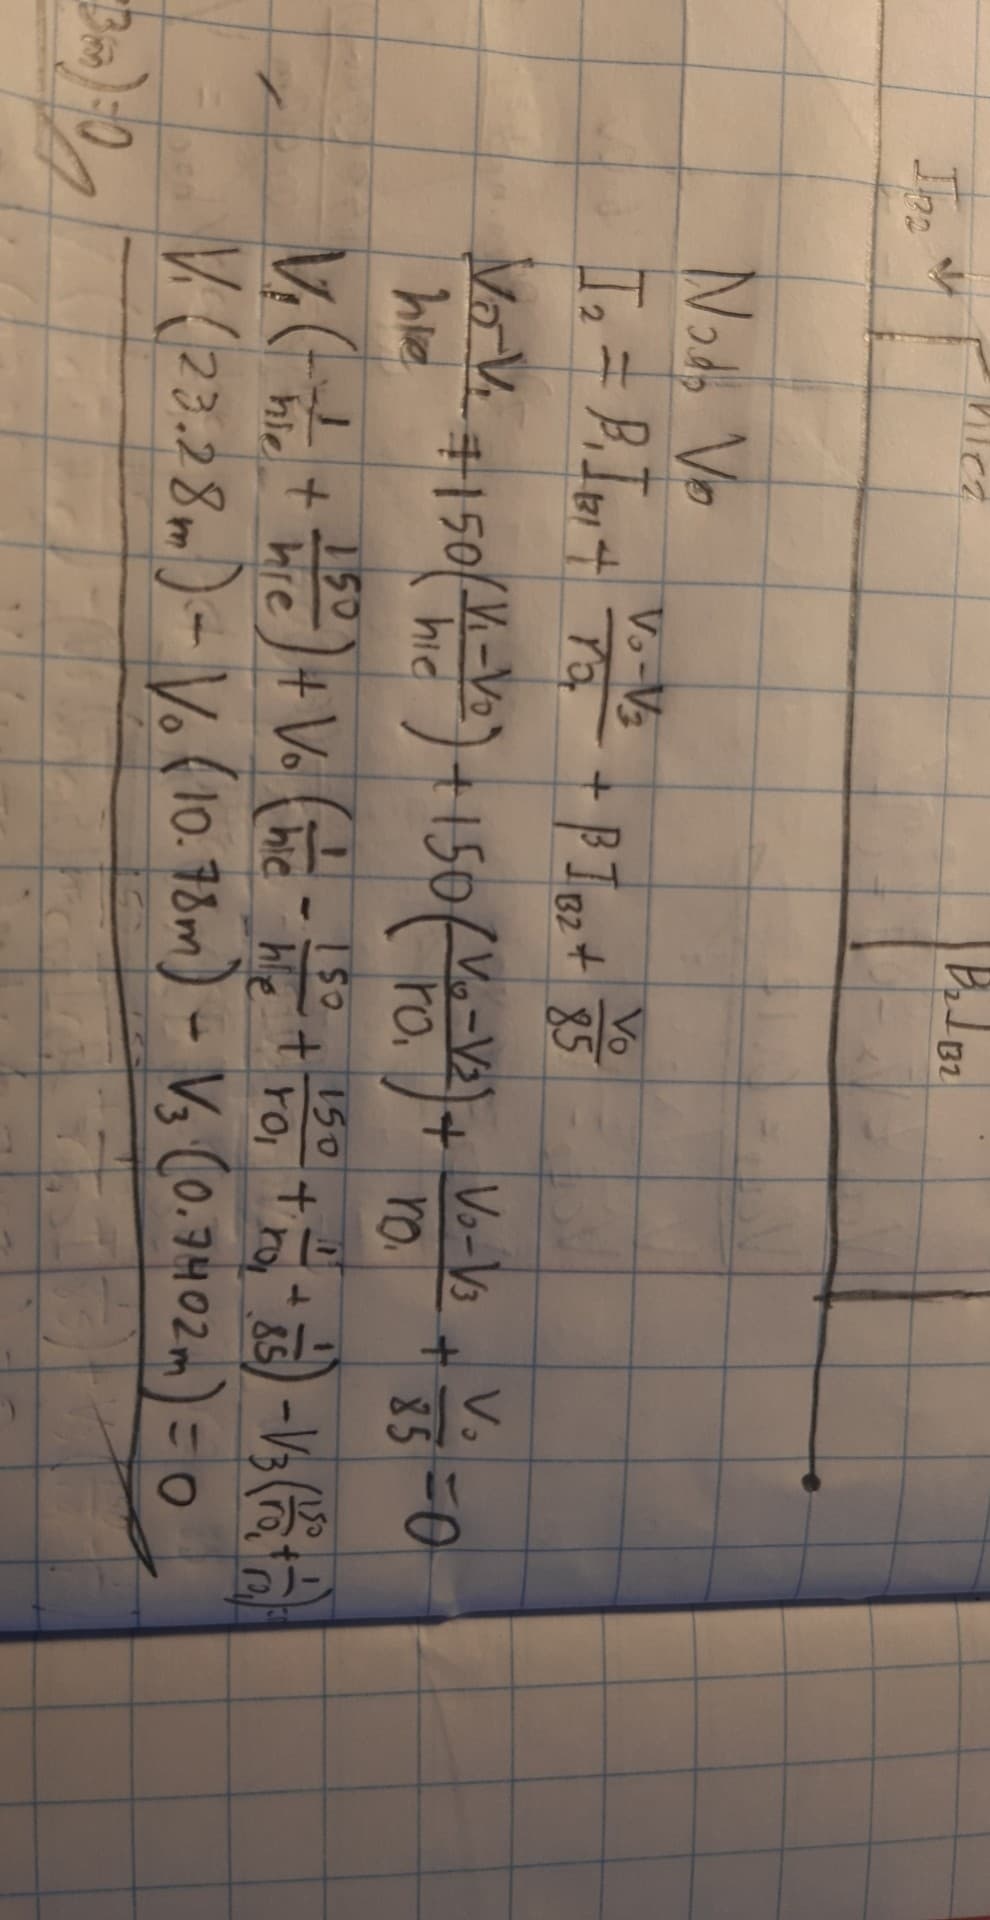 hie2
IB2 ↓
β2IB2
Nodo Vo
I2 = β1IB1 + (Vo-V3)/ro1 + βIB2 + Vo/85
(Vo-V1)/hie + 150((V1-Vo)/hie) + 150((Vo-V3)/ro1) + (Vo-V3)/ro1 + Vo/85 = 0
V1(-1/hie + 150/hie) + Vo(1/hie - 150/hie + 150/ro1 + 1/ro1 + 1/85) - V3(150/ro1 + 1/ro1) =
V1(23.28m) - Vo(10.78m) - V3(0.7402m) = 0
3m)=0